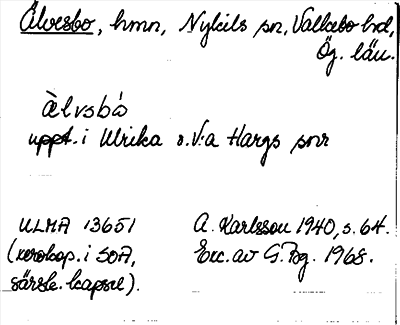 Älvesbo, hmn, Nykils sn, Valkebo hd,
Ög. län.
älvsbò
uppt. i Ulrika o. V:a Hargs snr
ULMA 13651
(xerokop. i SOA,
särsk. kapsel).
A. Karlsson 1940, s. 64.
Exc. av G. Bg. 1968.